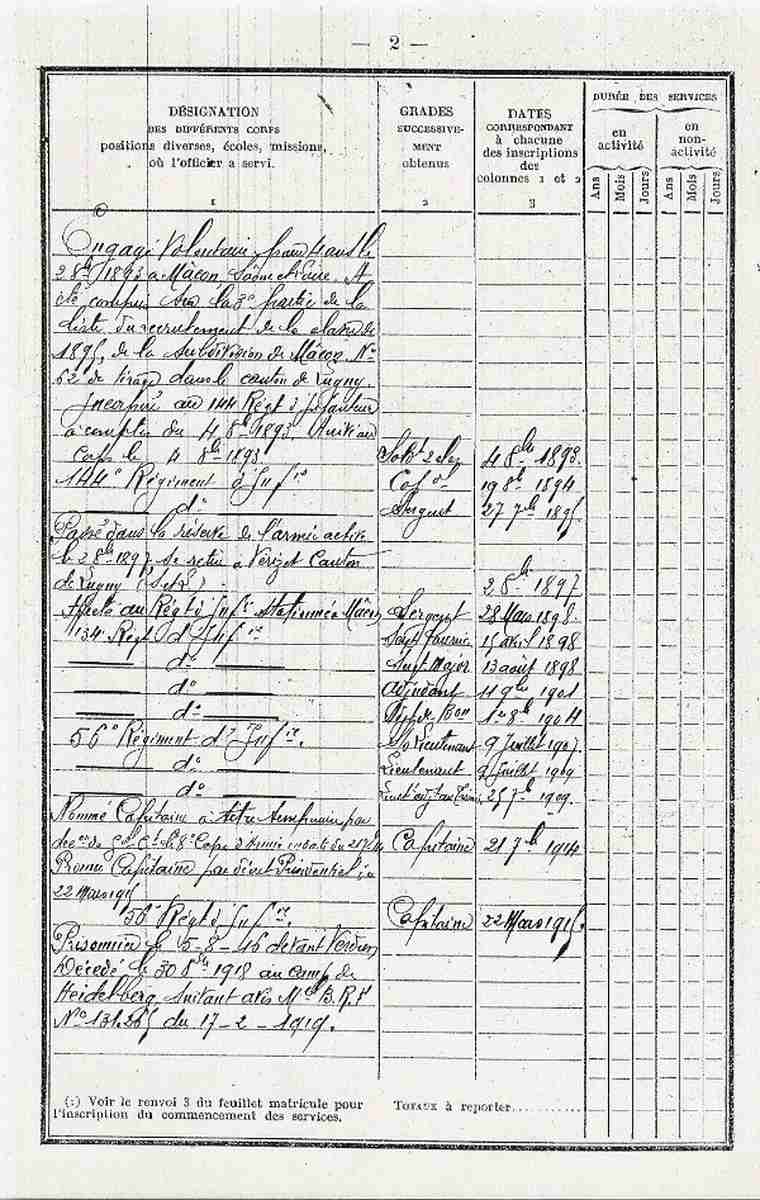 — 2 —
DÉSIGNATION
DES DIFFÉRENTS CORPS
positions diverses, écoles, missions,
où l'officier a servi.
1
GRADES
SUCCESSIVE-
MENT
obtenus
2
DATES
CORRESPONDANT
à chacune
des inscriptions
des
colonnes 1 et 2
3
DURÉE DES SERVICES
en
activité
en
non-
activité
Ans
Mois
Jours
Ans
Mois
Jours
Engagé Volontaire pour 4 ans le
2 8bre 1893 à Mâcon, Saône et Loire. A
été compris sur la 3e partie de la
liste du recrutement de la classe de
1895, de la Subdivision de Mâcon. No
62 de tirage dans le canton de Lugny.
Incorporé au 144 Régt d'Infanterie
à compter du 4 8bre 1893. Arrivé au
Corps le 4 8bre 1893. Soldt 2e cl. 4 8bre 1893.
144e Régiment d'Infie Cap al 19 8bre 1894
do Sergent 27 7bre 1895
Passé dans la réserve de l'armée active
le 2 8bre 1897, se retire à Verizet Canton
de Lugny (S et L) 2 8bre 1897
au Régt d'Infie Stationné à Mâcon Sergent 28 Mars 1898.
134e Régt d'Infie Sergt Fourrier 15 avril 1898
do Sergt Major 13 août 1898
do Adjudant 11 9bre 1901
do de Bon 1er 8bre 1904
56e Régiment d'Infie. So Lieutenant 9 Juillet 1907.
do Lieutenant 9 Juillet 1909
do 25 7bre 1909.
Nommé Capitaine à titre temporaire par
don du Gal Ct le 8e Corps d'Armée en date du 21 Capitaine 21 7bre 1914
Promu Capitaine par décret Présidentiel du
22 Mars 1915
56e Régt d'Infie. Capitaine 22 Mars 1915.
Prisonnier le 5-8-16 devant Verdun
Décédé le 30 8bre 1918 au camp de
Heidelberg, suivant avis Mel B.R.
No 131.265 du 17-2-1919.
(1) Voir le renvoi 3 du feuillet matricule pour
l'inscription du commencement des services.
TOTAUX à reporter............